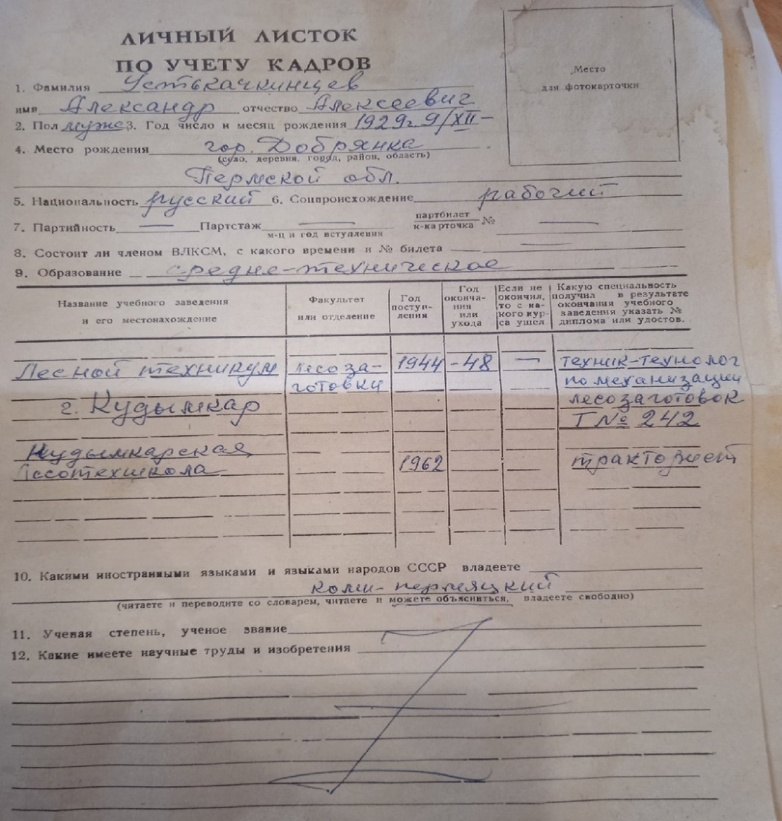 ЛИЧНЫЙ ЛИСТОК
ПО УЧЕТУ КАДРОВ
Место
для фотокарточки
1. Фамилия Устькачкинцев
имя Александр отчество Алексеевич
2. Пол муж 3. Год число и месяц рождения 1929г. 9/XII-
4. Место рождения гор. Добрянка
(село, деревня, город, район, область)
Пермской обл.
5. Национальность русский 6. Соцпроисхождение рабочий
7. Партийность — Партстаж — партбилет к-карточка № —
м-ц и год вступления
8. Состоит ли членом ВЛКСМ, с какого времени и № билета —
9. Образование средне-техническое
Название учебного заведения и его местонахождение
Факультет или отделение
Год поступ-ления
Год оконча-ния или ухода
Если не окончил, то с ка-кого кур-са ушел
Какую специальность получил в результате окончания учебного заведения указать № диплома или удостов.
Лесной техникум лесоза- 1944 -48 — техник-технолог
готовки по механизации
г. Кудымкар лесозаготовок
Т № 242
Кудымкарская
лесотехшкола 1962 тракторист
10. Какими иностранными языками и языками народов СССР владеете
коми-пермяцкий
(читаете и переводите со словарем, читаете и можете объясняться, владеете свободно)
11. Ученая степень, ученое звание
12. Какие имеете научные труды и изобретения